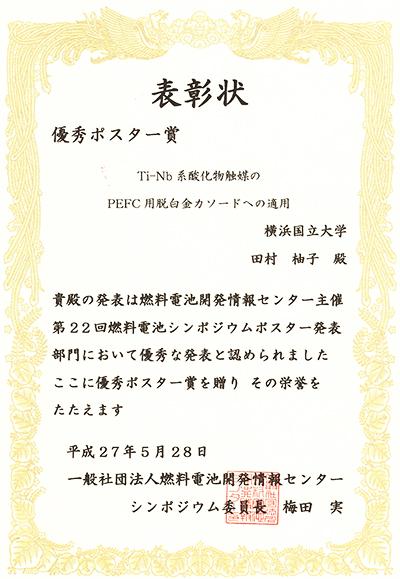 表彰状
優秀ポスター賞
Ti-Nb 系酸化物触媒の
PEFC 用脱白金カソードへの適用
横浜国立大学
田村 柚子 殿
貴殿の発表は燃料電池開発情報センター主催
第22回燃料電池シンポジウムポスター発表
部門において優秀な発表と認められました
ここに優秀ポスター賞を贈り その栄誉を
たたえます
平成27年5月28日
一般社団法人燃料電池開発情報センター
シンポジウム委員長 梅田 実